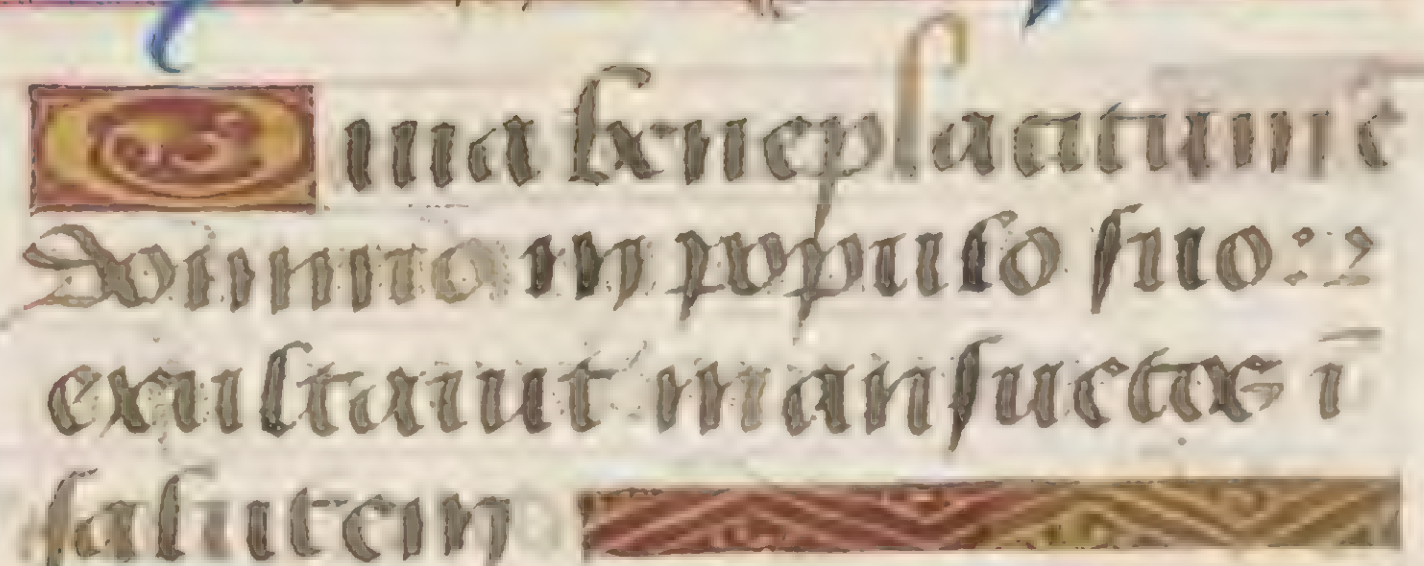 Quia beneplacitum e
domino in populo suo: 2
exultavit mansuetos ī
salutem